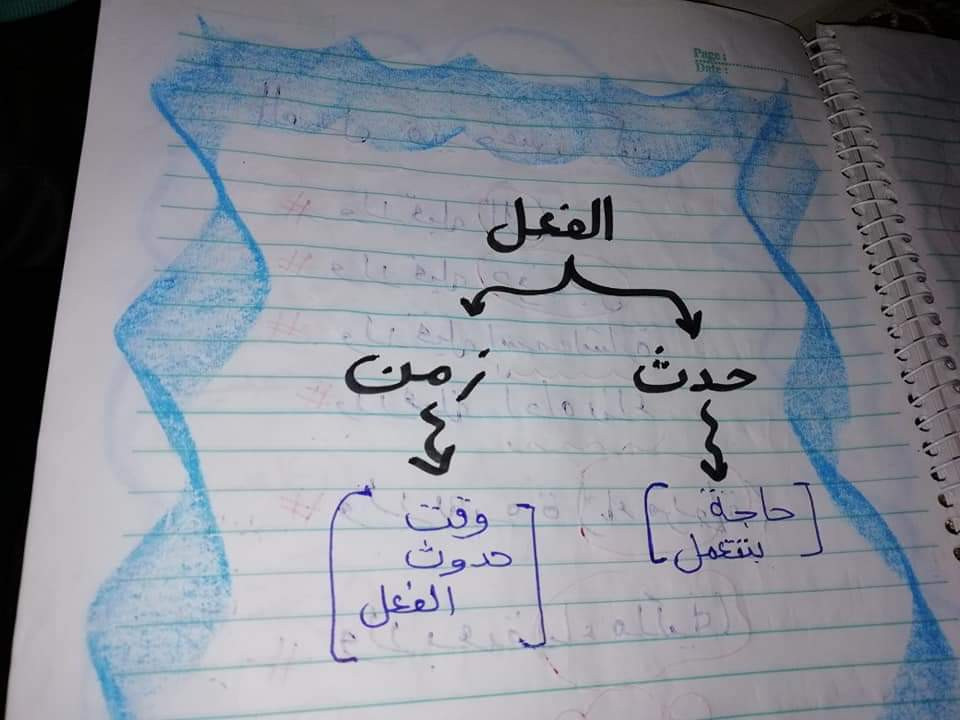 Page:
Date:
الفعل
حدث
زمن
حاجة
بتتعمل
وقت
حدوث
الفعل